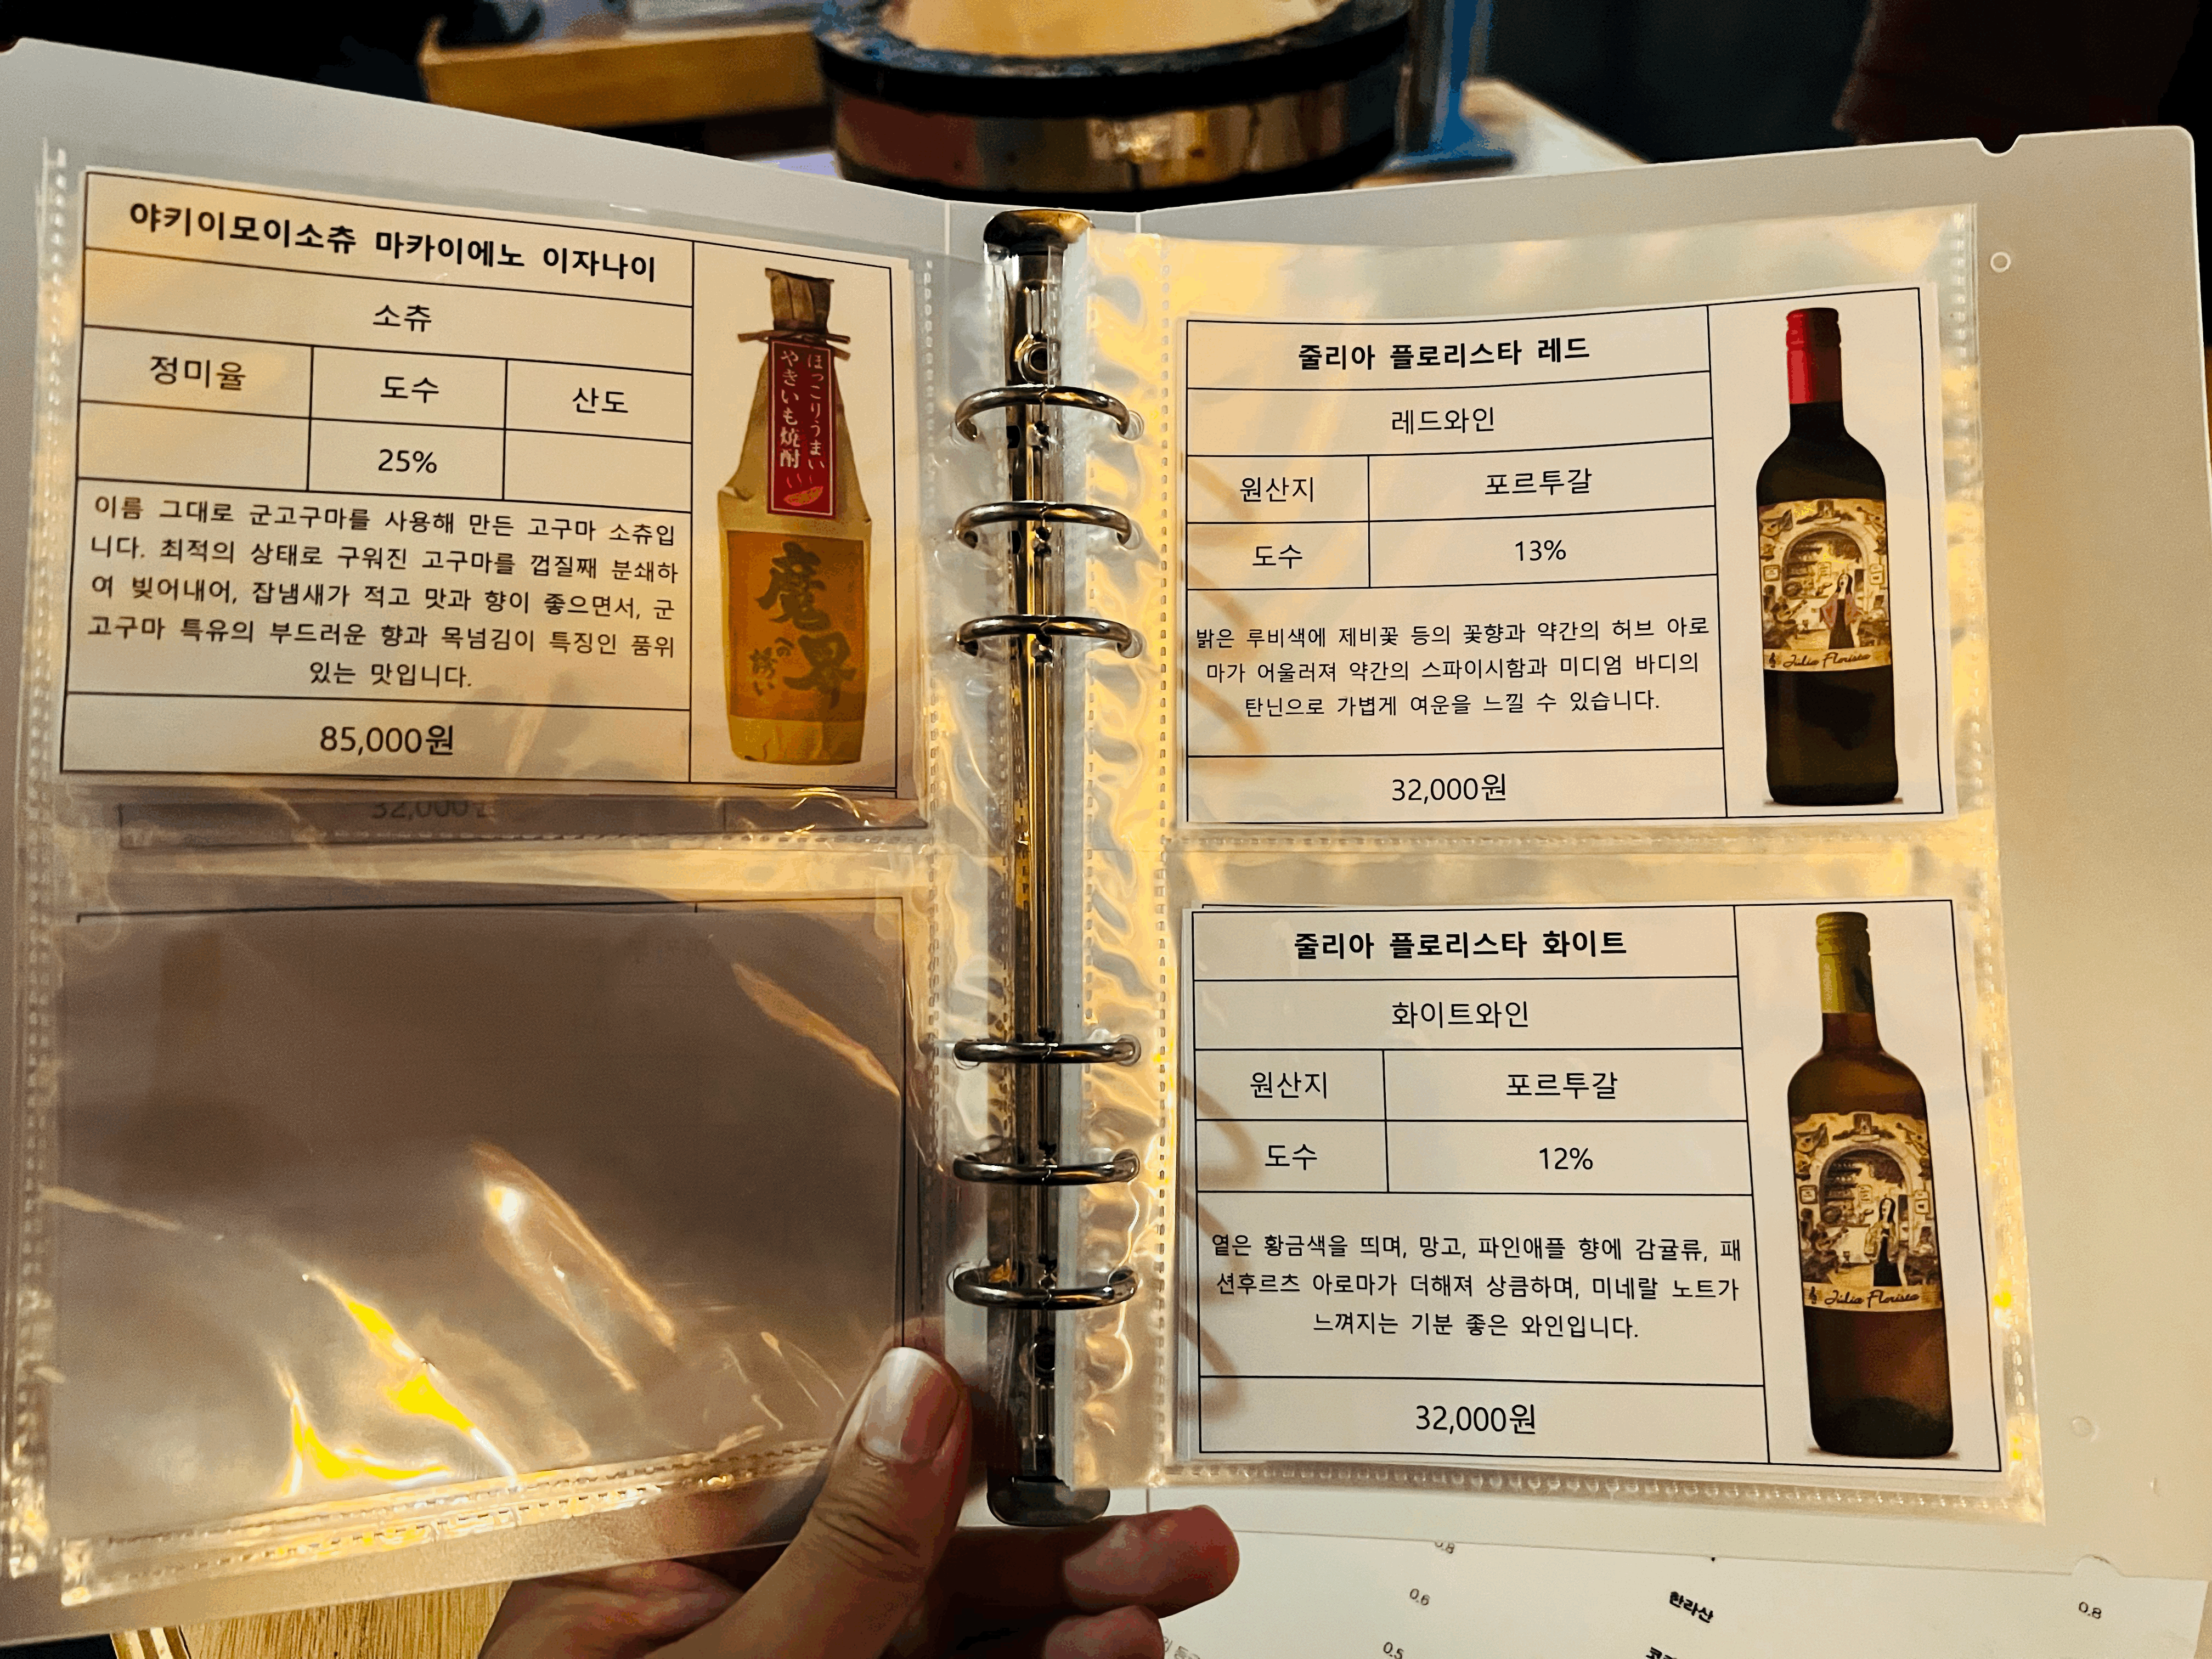 야키이모이소츄 마카이에노 이자나이
소츄
정미율 도수 산도
25%
이름 그대로 군고구마를 사용해 만든 고구마 소츄입
니다. 최적의 상태로 구워진 고구마를 껍질째 분쇄하
여 빚어내어, 잡냄새가 적고 맛과 향이 좋으면서, 군
고구마 특유의 부드러운 향과 목넘김이 특징인 품위
있는 맛입니다.
85,000원
32,000원
ほっこりうまい
やきいも焼酎
魔界
への誘い
줄리아 플로리스타 레드
레드와인
원산지 포르투갈
도수 13%
밝은 루비색에 제비꽃 등의 꽃향과 약간의 허브 아로
마가 어울러져 약간의 스파이시함과 미디엄 바디의
탄닌으로 가볍게 여운을 느낄 수 있습니다.
32,000원
Julia Florista
줄리아 플로리스타 화이트
화이트와인
원산지 포르투갈
도수 12%
옅은 황금색을 띄며, 망고, 파인애플 향에 감귤류, 패
션후르츠 아로마가 더해져 상큼하며, 미네랄 노트가
느껴지는 기분 좋은 와인입니다.
32,000원
Julia Florista
0.8
0.6 한라산 0.8
0.5